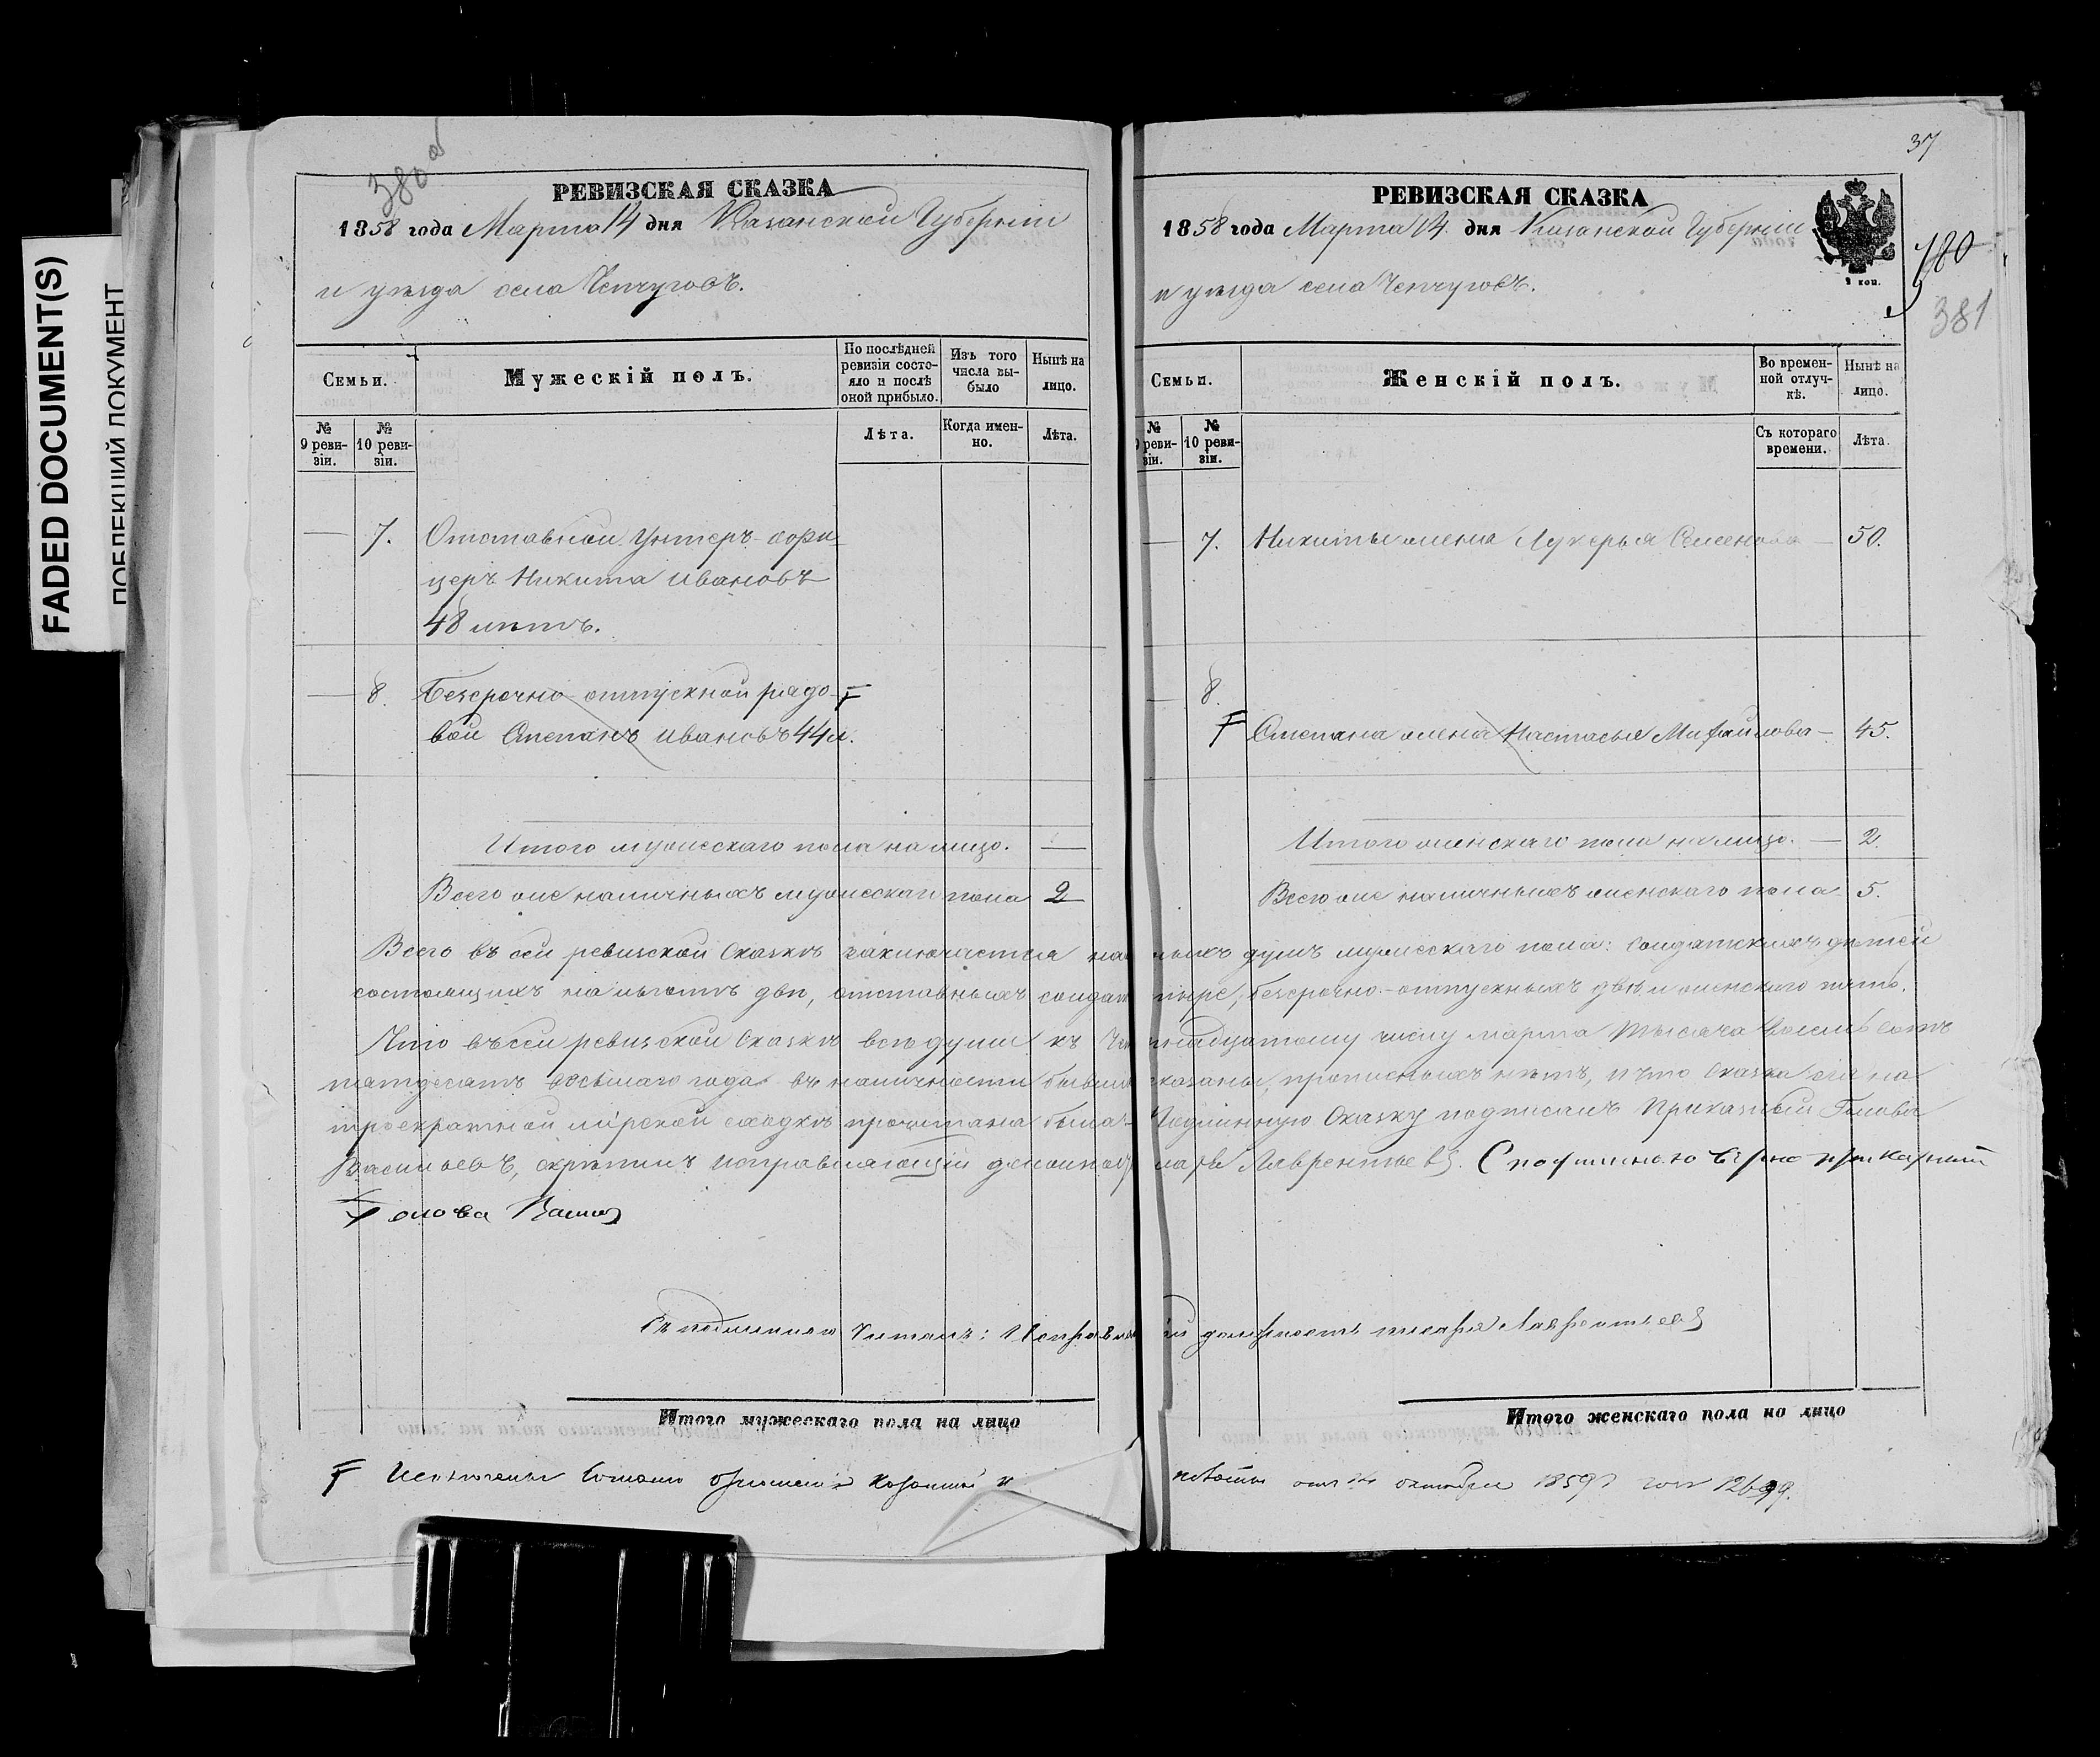 FADED DOCUMENT(S)
ПОБЛЕКШИЙ ДОКУМЕНТ
380 а
РЕВИЗСКАЯ СКАЗКА
1858 года Марта 14 дня Казанской Губерніи
и уѣзда села Чепчуговъ.
Семьи.
Мужескій полъ.
По послѣдней ревизіи состояло и послѣ оной прибыло.
Изъ того числа выбыло
Нынѣ на лицо.
№ 9 ревизіи.
№ 10 ревизіи.
Лѣта.
Когда именно.
Лѣта.
— 7. Отставной Унтеръ-офи-
церъ Никита Ивановъ
48 лѣтъ.
— 8. Безсрочно-отпускной рядо-
вой Степанъ Ивановъ 44 л.
Итого мужескаго пола на лицо. —
Всего же наличныхъ мужескаго пола 2
37
РЕВИЗСКАЯ СКАЗКА
1858 года Марта 14 дня Казанской Губерніи
и уѣзда села Чепчуговъ.
коп.
180
381
Семьи.
Женскій полъ.
Во временной отлучкѣ.
Нынѣ на лицо.
№ 9 ревизіи.
№ 10 ревизіи.
Съ котораго времени.
Лѣта.
— 7. Никиты жена Лукерья Семенова — 50.
8.
Степана жена Настасья Михайлова — 45.
Итого женскаго пола на лицо. — 2.
Всего же наличныхъ женскаго пола 5.
Всего въ сей ревизской сказкѣ заключается мужескаго пола: солдатскихъ дѣтей
состоящихъ на льготѣ двѣ, отставныхъ солдат безсрочно-отпускныхъ двѣ и женскаго пять.
Что въ сей ревизской сказкѣ всѣ души къ числу марта тысяча восемь сотъ
пятдесятъ восьмаго года въ наличности бывшія показаны, прописныхъ нѣтъ, и что сказка сія на
троекратной мірской сходкѣ прочитана была. Подлинную сказку подписалъ Приказный Голова
Васильевъ, скрѣпилъ исправляющій должность писаря Лаврентьевъ. Съ подлинною вѣрно приказный
Голова
Съ подлиннымъ читалъ: Исправляющій должность писаря Лаврентьевъ
Итого мужескаго пола на лицо
Итого женскаго пола на лицо
Исключены октября 1859 г. за № 12699.